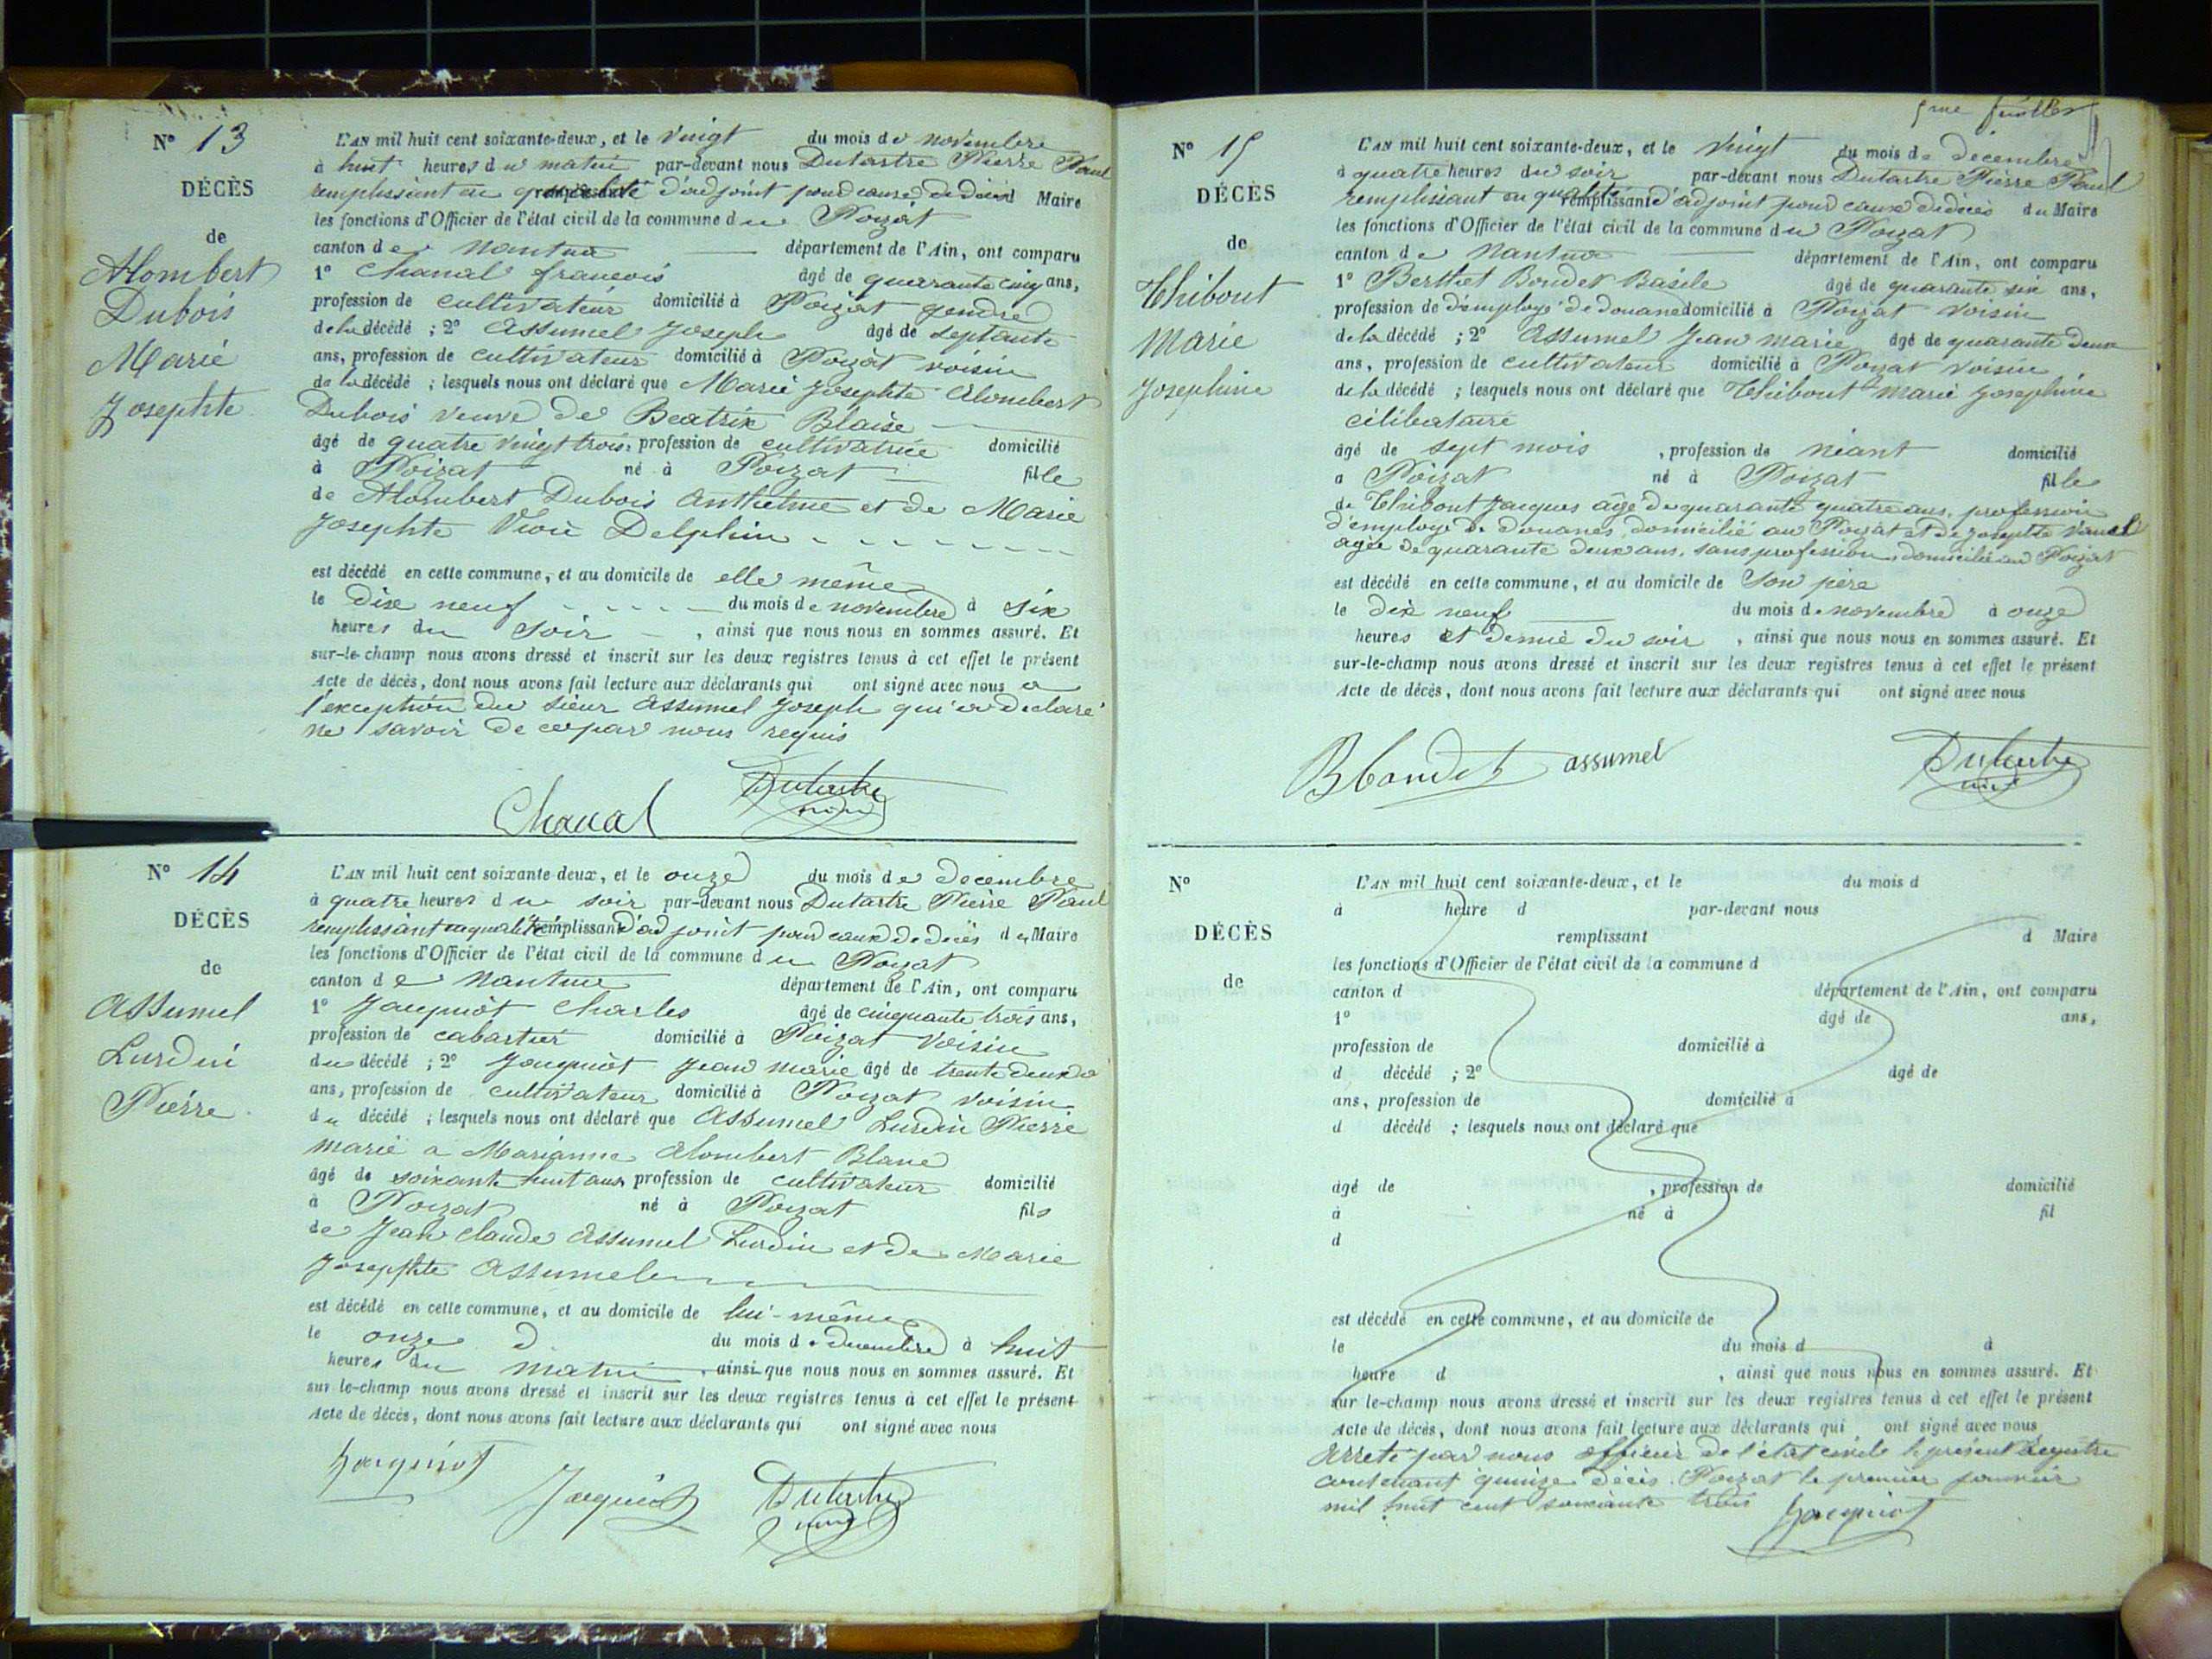 N° 13
DÉCÈS
de
Alombert
Dubois
Marie
Josephte
L'AN mil huit cent soixante-deux, et le vingt du mois de novembre
à huit heures du matin par-devant nous Dutartre Pierre Paul
remplissant en qualité d'adjoint pour cause de décès du Maire
les fonctions d'Officier de l'état civil de la commune du Poizat
canton de Nantua département de l'Ain, ont comparu
1° Chanal françois âgé de quarante cinq ans,
profession de cultivateur domicilié à Poizat gendre
de la décédé ; 2° Assumel Joseph âgé de septante
ans, profession de cultivateur domicilié à Poizat voisin
de la décédé ; lesquels nous ont déclaré que Marie Josephte Alombert
Dubois veuve de Beatrix Blaise
âgé de quatre vingt trois, profession de cultivatrice domicilié
à Poizat né à Poizat fille
de Alombert Dubois Anthelme et de Marie
Josephte Vion Delphin
est décédé en cette commune, et au domicile de elle même
le dix neuf du mois de novembre à six
heures du soir, ainsi que nous nous en sommes assuré. Et
sur-le-champ nous avons dressé et inscrit sur les deux registres tenus à cet effet le présent
Acte de décès, dont nous avons fait lecture aux déclarants qui ont signé avec nous a
l'exception du sieur Assumel Joseph qui a declaré
ne savoir de ce par nous requis
Chanal Dutartre
N° 14
DÉCÈS
de
Assumel
Lurdin
Pierre
L'AN mil huit cent soixante-deux, et le onze du mois de decembre
à quatre heures du soir par-devant nous Dutartre Pierre Paul
remplissant en qualité remplissant d'adjoint pour cause de decès du Maire
les fonctions d'Officier de l'état civil de la commune du Poizat
canton de Nantua département de l'Ain, ont comparu
1° Jacquiot Charles âgé de cinquante trois ans,
profession de cabartier domicilié à Poizat voisin
du décédé ; 2° Jacquiot Jean Marie âgé de trente deux
ans, profession de cultivateur domicilié à Poizat voisin
du décédé ; lesquels nous ont déclaré que Assumel Lurdin Pierre
marié a Marianne Alombert Blanc
âgé de soixante huit ans profession de cultivateur domicilié
à Poizat né à Poizat fils
de Jean Claude Assumel Lurdin et de Marie
Josephte Assumel
est décédé en cette commune, et au domicile de lui-même
le onze du mois de decembre à huit
heures du matin, ainsi que nous nous en sommes assuré. Et
sur-le-champ nous avons dressé et inscrit sur les deux registres tenus à cet effet le présent
Acte de décès, dont nous avons fait lecture aux déclarants qui ont signé avec nous
Jacquiot Jacquiot Dutartre
5me feuillet
N° 15
DÉCÈS
de
Thibout
Marie
Josephine
L'AN mil huit cent soixante-deux, et le vingt du mois de decembre
à quatre heures du soir par-devant nous Dutartre Pierre Paul
remplissant en qualité remplissant d'adjoint pour cause de decès du Maire
les fonctions d'Officier de l'état civil de la commune du Poizat
canton de Nantua département de l'Ain, ont comparu
1° Berthet Bondet Basile âgé de quarante six ans,
profession de d'employé de douane domicilié à Poizat voisin
de la décédé ; 2° Assumel Jean marie âgé de quarante deux
ans, profession de cultivateur domicilié à Poizat voisin
de la décédé ; lesquels nous ont déclaré que Thibout Marie Josephine
célibataire
âgé de sept mois, profession de néant domicilié
à Poizat né à Poizat fille
de Thibout Jacques âgé de quarante quatre ans, profession
d'employé de douanes, domicilié au Poizat et de Josephte
agée de quarante deux ans, sans profession, domiciliée au Poizat
est décédé en cette commune, et au domicile de son père
le dix neuf du mois de novembre à onze
heures et demie du soir, ainsi que nous nous en sommes assuré. Et
sur-le-champ nous avons dressé et inscrit sur les deux registres tenus à cet effet le présent
Acte de décès, dont nous avons fait lecture aux déclarants qui ont signé avec nous
B Bondet assumel Dutartre
N°
DÉCÈS
de
L'AN mil huit cent soixante-deux, et le du mois d
à heure d par-devant nous
remplissant d Maire
les fonctions d'Officier de l'état civil de la commune d
canton d département de l'Ain, ont comparu
1° âgé de ans,
profession de domicilié à
d décédé ; 2° âgé de
ans, profession de domicilié à
d décédé ; lesquels nous ont déclaré que
âgé de , profession de domicilié
à né à fil
d
est décédé en cette commune, et au domicile de
le du mois d à
heure d , ainsi que nous nous en sommes assuré. Et
sur le-champ nous avons dressé et inscrit sur les deux registres tenus à cet effet le présent
Acte de décès, dont nous avons fait lecture aux déclarants qui ont signé avec nous
Arreté par nous officier de l'état civile le présent registre
contenant quinze décès. Poizat le premier janvier
mil huit cent soixante trois Jacquiot